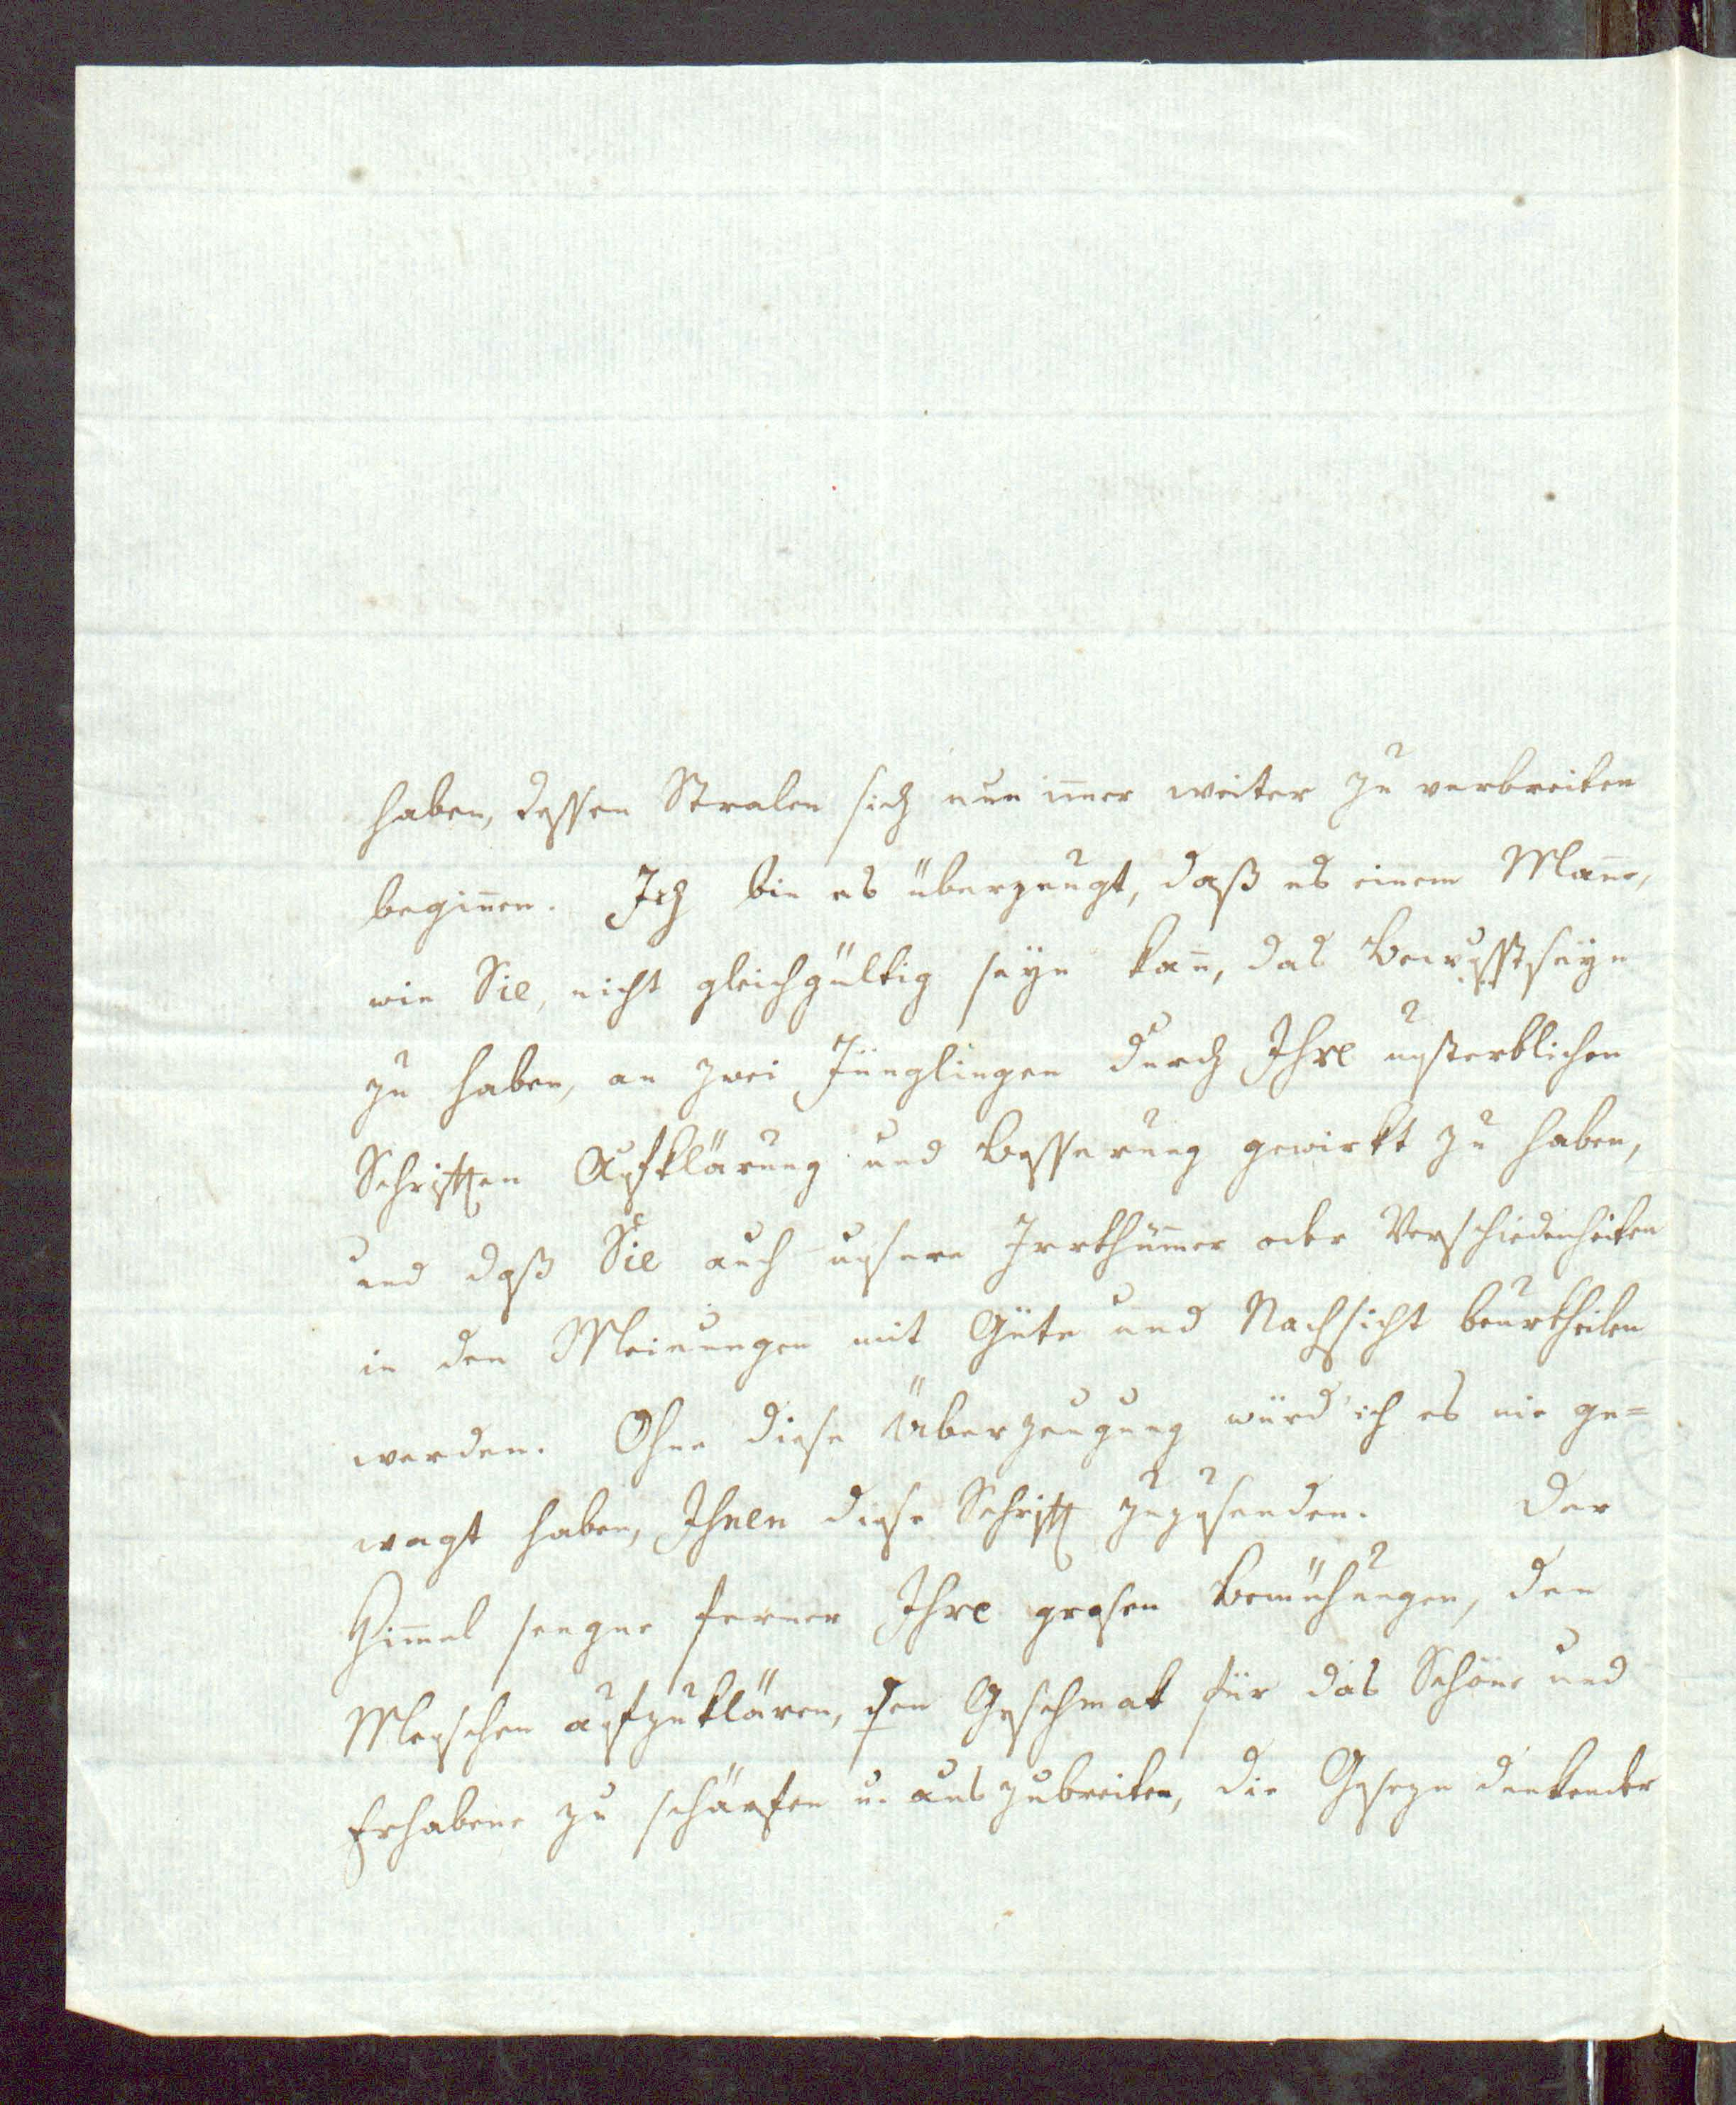 haben, dessen Stralen sich nun im̄er weiter zu verbreiten
begin̄en. Ich bin es überzeugt, daß es einem Man̄e,
wie Sie, nicht gleichgültig seÿn kan̄, das Bewusstseÿn
zu haben, an zwei Jünglingen durch Ihre unsterblichen
Schriften Aufklärung und Besserung gewirkt zu haben,
und daß Sie auch unsere Irrthüm̄er oder Verschiedenheiten
in den Meinungen mit Güte und Nachsicht beurtheilen
werden. Ohne diese Überzeugung würd' ich es nie ge=
wagt haben, Ihnen diese Schrift zuzusenden. Der
Him̄el seegne ferner Ihre grosen Bemühungen, den
Menschen aufzuklären, den Geschmak für das Schöne und
Erhabene zu schärfen u. auszubreiten, die Geseze denkender